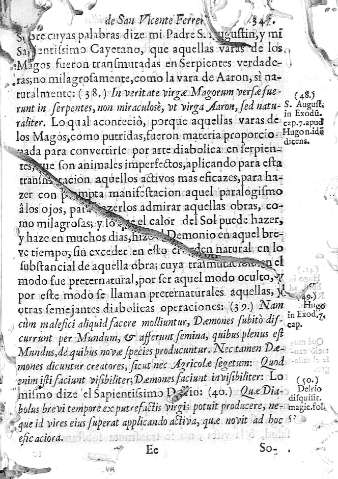 de San Vicente Ferrer 347.
Sobre cuyas palabras dize mi Padre S. Augustin, y mi
Sapientissimo Cayetano, que aquellas varas de los
Magos fueron transmutadas en Serpientes verdade-
ras; no milagrosamente, como la vara de Aaron, si na-
turalmente: (38.) In veritate virgæ Magorum versæ fue-
runt in serpentes, non miraculosè, ut virga Aaron, sed natu-
raliter. Lo qual aconteció, porque aquellas varas de
los Magos, como putridas, fueron materia proporcio-
nada para convertirse por arte diabolica en serpien-
tes, que son animales imperfectos, aplicando para esta
transmutacion aquellos activos mas eficazes, para ha-
zer con prompta manifestacion aquel paralogismo
à los ojos, para hazerlos admirar aquellas obras, co-
mo milagrosas; y lo que el calor del Sol puede hazer,
y haze en muchos dias, hizo el Demonio en aquel bre-
ve tiempo, sin exceder en esto el orden natural en lo
substancial de aquella obra; cuya transmutacion en el
modo fue preternatural, por ser aquel modo oculto, y
por este modo se llaman preternaturales aquellas, y
otras semejantes diabolicas operaciones: (39.) Nam
cùm malefici aliquid facere molliuntur, Dæmones subitò dis-
currunt per Mundum, & afferunt semina, quibus plenus est
Mundus, de quibus novæ species producuntur. Nec tamen Dæ-
mones dicuntur creatores, sicut nec Agricolæ segetum: Quod
enim isti faciunt visibiliter, Dæmones faciunt invisibiliter: Lo
mismo dize el Sapientissimo Delrio: (40.) Quæ Dia-
bolus brevi tempore ex putrefactis virgis potuit producere, ne-
que id vires eius superat applicando activa, quæ novit ad hoc
efficaciora.
Ee So-
(48.)
S. August.
in Exod.
cap. 7. apud
Hugon. ide
dicens.
(49.)
Hugo
in Exod. 7.
cap.
(50.)
Delrio
disquisit.
magic. fol.